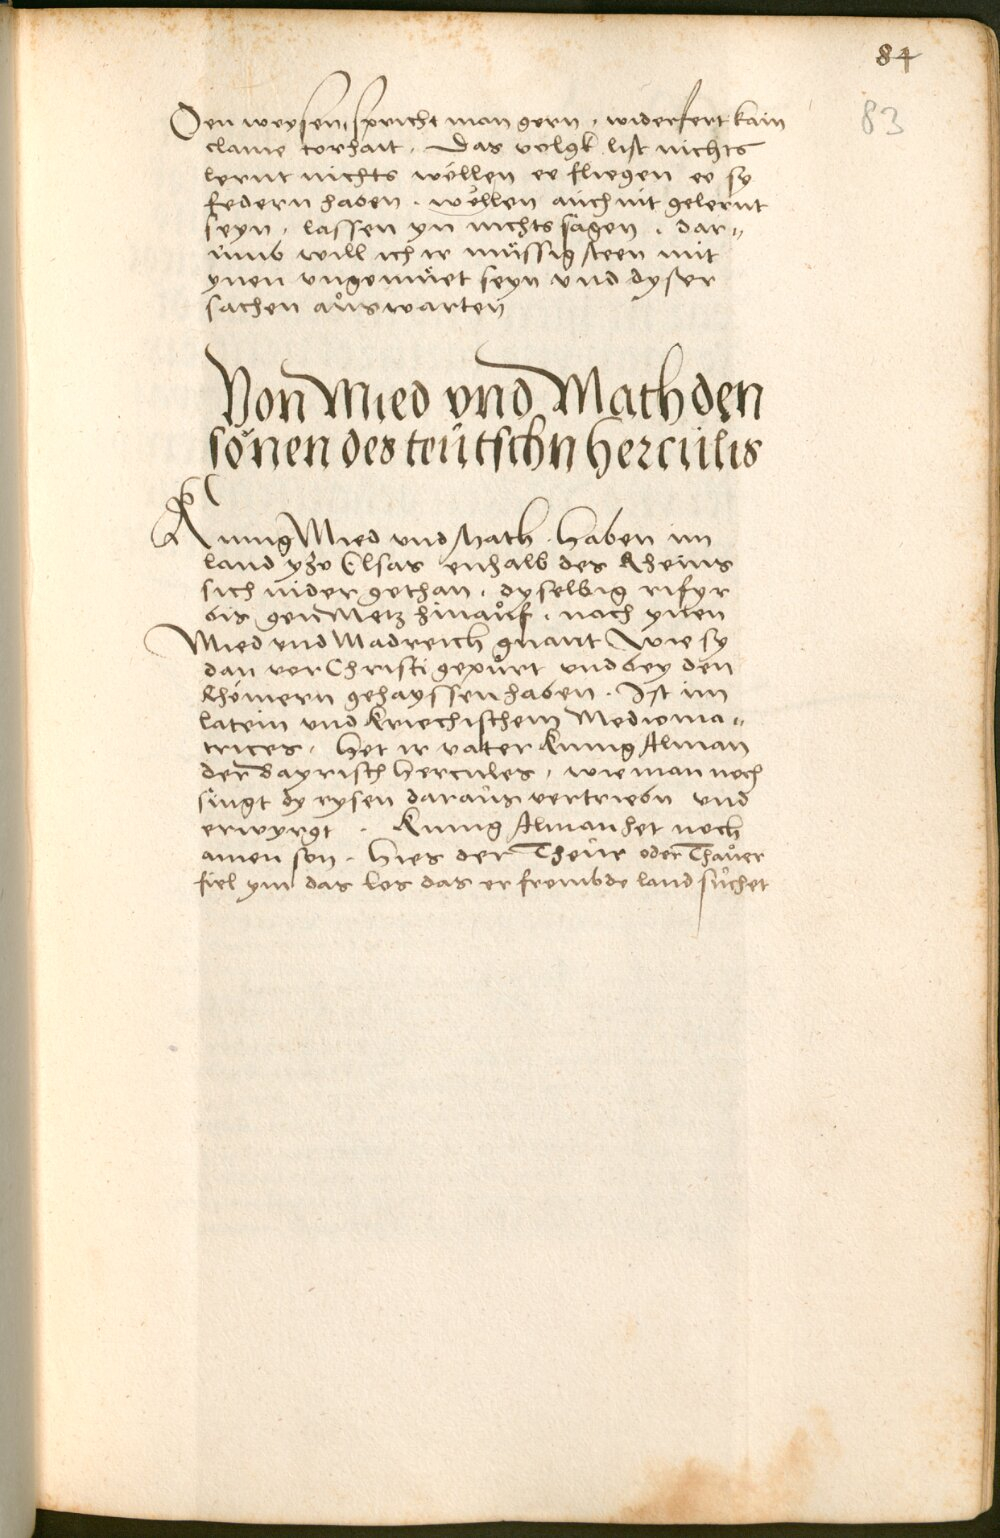 84
83
Den weysen, spricht man gern, widerfert kain
claine torhait. Das volgk list nichts
lernt nichts wöllen ee fliegen ee sy
federn haben. wöllen auch nit gelernt
seyn, lassen yn nichts sagen. dar„
umb will ich ir müssig steen mit
ynen ungemüet seyn und dyser
sachen aůswarten
Von Mied vnd Math den
sönen des teütschn Herculis
Künig Mied und Math. haben im
land yzo Elsas enhalb des Rheins
sich nider gethan. dyselbig rifyr
bis gen Metz hinaůf. nach ynen
Mied und Madreich gnant Wie sy
dan vor Christi gepůrt und bey den
Rhömern gehayssen haben. Ist im
latein und kriechischem Medioma„
trices. het ir vater Künig Alman
der bayrisch hercules, wie man noch
singt dy rysen daraůs vertriebn und
erwyrgt. Künig Alman het noch
ainen son. hies der Theür oder Thaůer
fiel ym das los das er frembde land sůchet